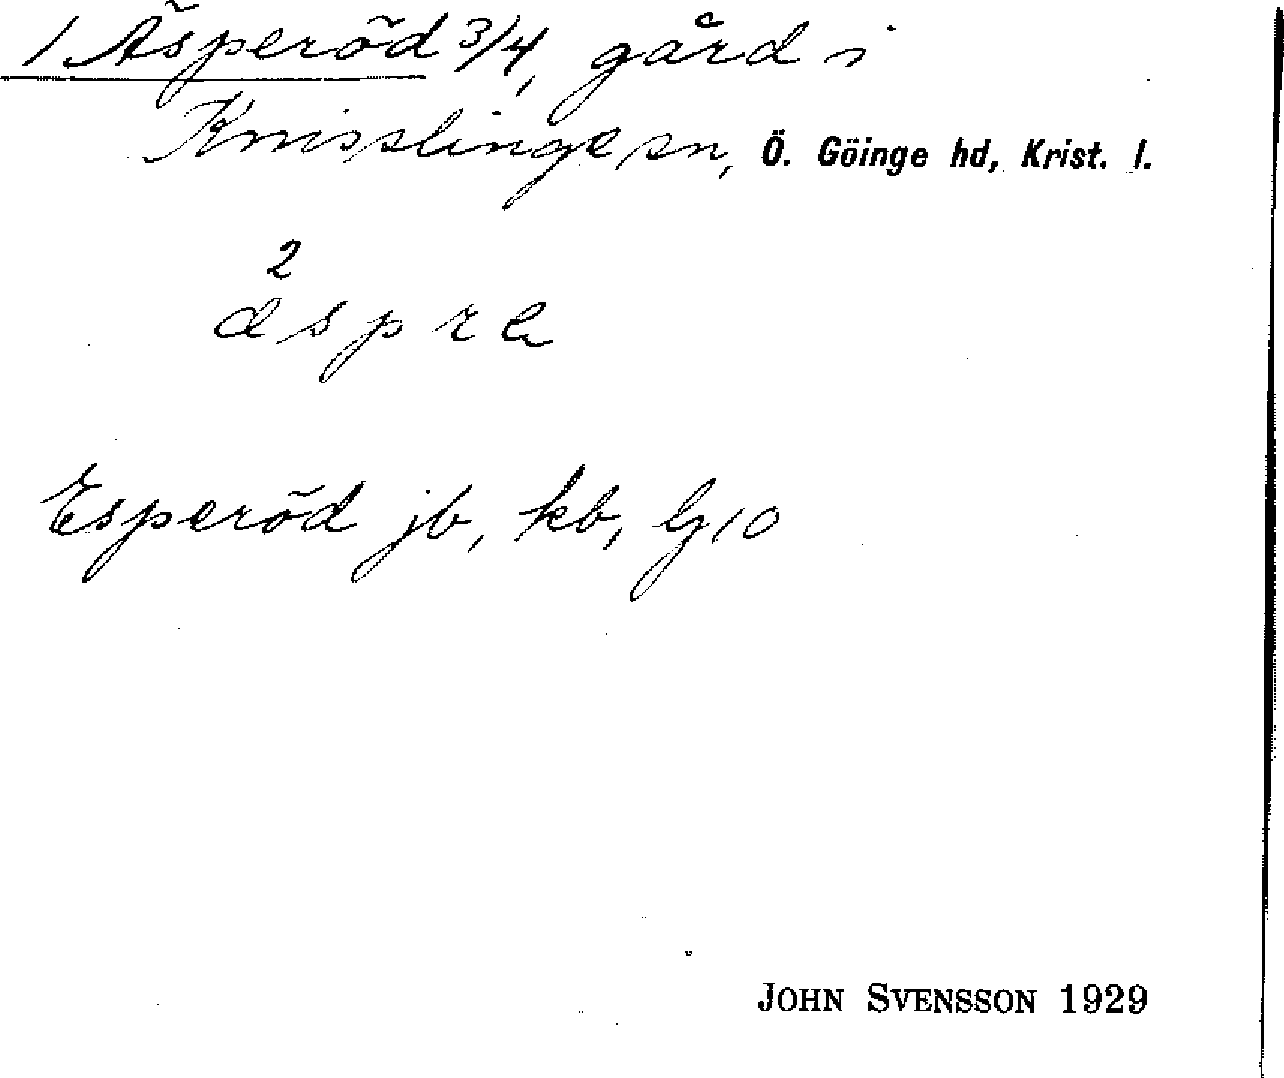 1 Äsperöd 3/4, gård i
Knisslinge sn, Ö. Göinge hd, Krist. l.
2
Esperöd jb, kb, Gj 10
JOHN SVENSSON 1929